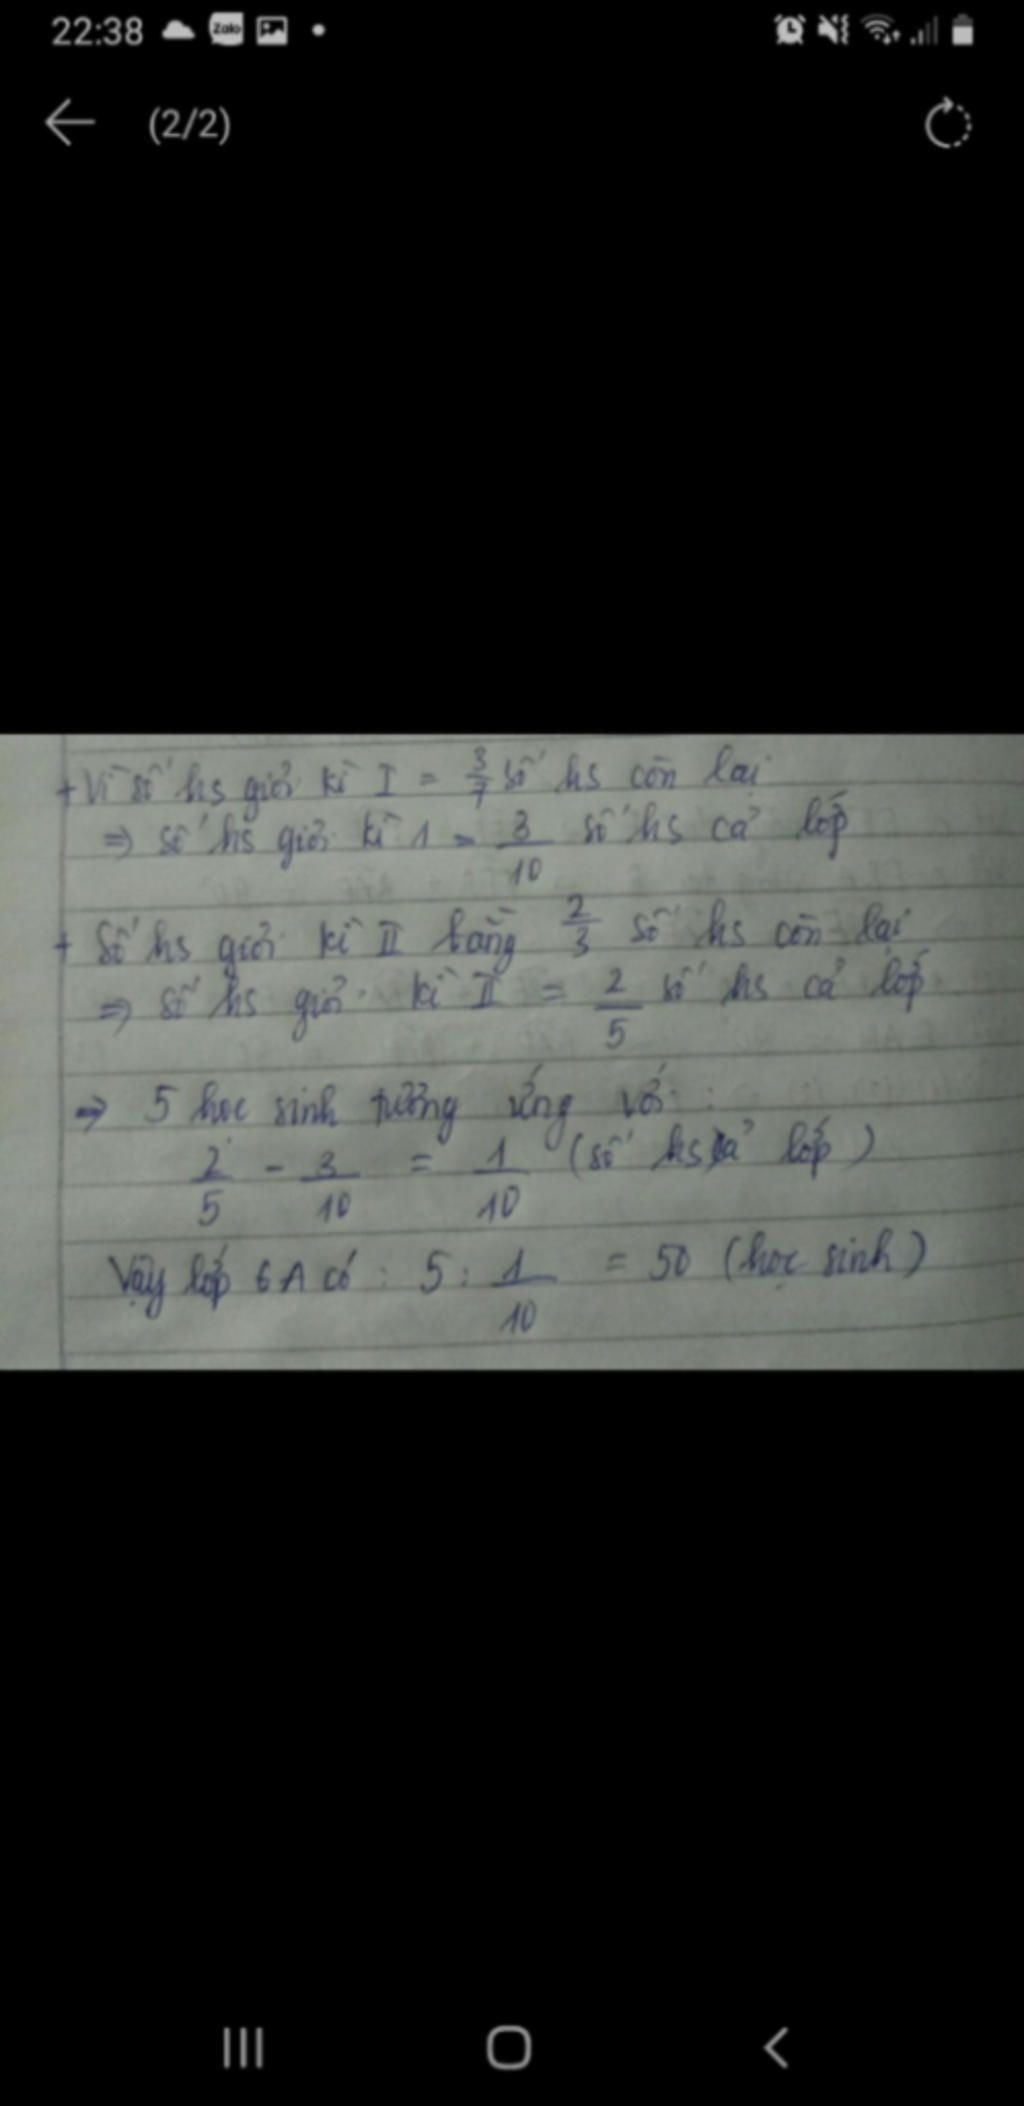 22:38 Zalo
(2/2)
+ Vì số hs giỏi kì I = 3/7 số hs còn lại
⇒ số hs giỏi kì 1 = 3/10 số hs cả lớp
+ Số hs giỏi kì II bằng 2/3 số hs còn lại
⇒ số hs giỏi kì II = 2/5 số hs cả lớp
⇒ 5 học sinh tương ứng với :
2/5 - 3/10 = 1/10 (số hs cả lớp)
Vậy lớp 6A có : 5 : 1/10 = 50 (học sinh)